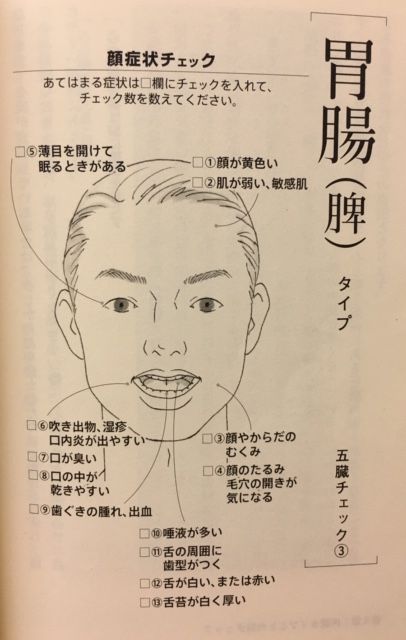 胃腸(脾)タイプ
五臓チェック③
顔症状チェック
あてはまる症状は□欄にチェックを入れて、
チェック数を数えてください。
□①顔が黄色い
□②肌が弱い、敏感肌
□③顔やからだの
むくみ
□④顔のたるみ
毛穴の開きが
気になる
□⑤薄目を開けて
眠るときがある
□⑥吹き出物、湿疹
口内炎が出やすい
□⑦口が臭い
□⑧口の中が
乾きやすい
□⑨歯ぐきの腫れ、出血
□⑩唾液が多い
□⑪舌の周囲に
歯型がつく
□⑫舌が白い、または赤い
□⑬舌苔が白く厚い